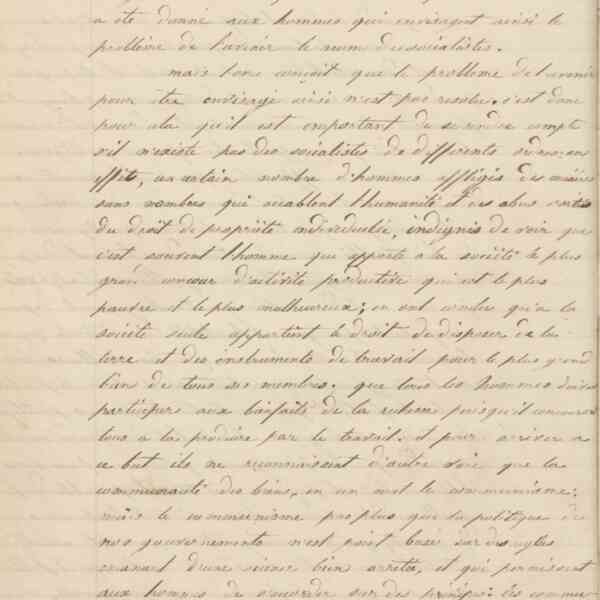 a été donné aux hommes qui envisagent ainsi le
problème de l'avenir le nom de socialistes.
mais l'on conçoit que le problème de l'avenir
pour être envisagé ainsi n'est pas résolu. c'est donc
pour cela qu'il est important de se rendre compte
s'il n'existe pas des socialistes de différents en
effet, un certain nombre d'hommes affligés des misères
sans nombres qui accablent l'humanité et des abus sortis
du droit de propriété individuelle, indignés de voir que
c'est souvent l'homme qui apporte a la société le plus
grand concour d'activité productive qui est le plus
pauvre et le plus malheureux; en ont conclu qu'a la
société seule appartînt le droit de disposer de la
terre et des instruments de travail pour le plus grand
bien de tous ses membres. que tous les hommes doivent
participer aux bienfaits de la richesse puisqu'il concourent
tous a la produire par le travail. et pour arriver a
ce but ils ne reconnaissent d'autre voie que la
communauté des biens, en un mot le communisme;
mais le communisme pas plus que la politique de
nos gouvernements n'est point basé sur des règles
émanant d'une science bien arrêtée, et qui permissent
aux hommes de s'accorder sur des principes: les